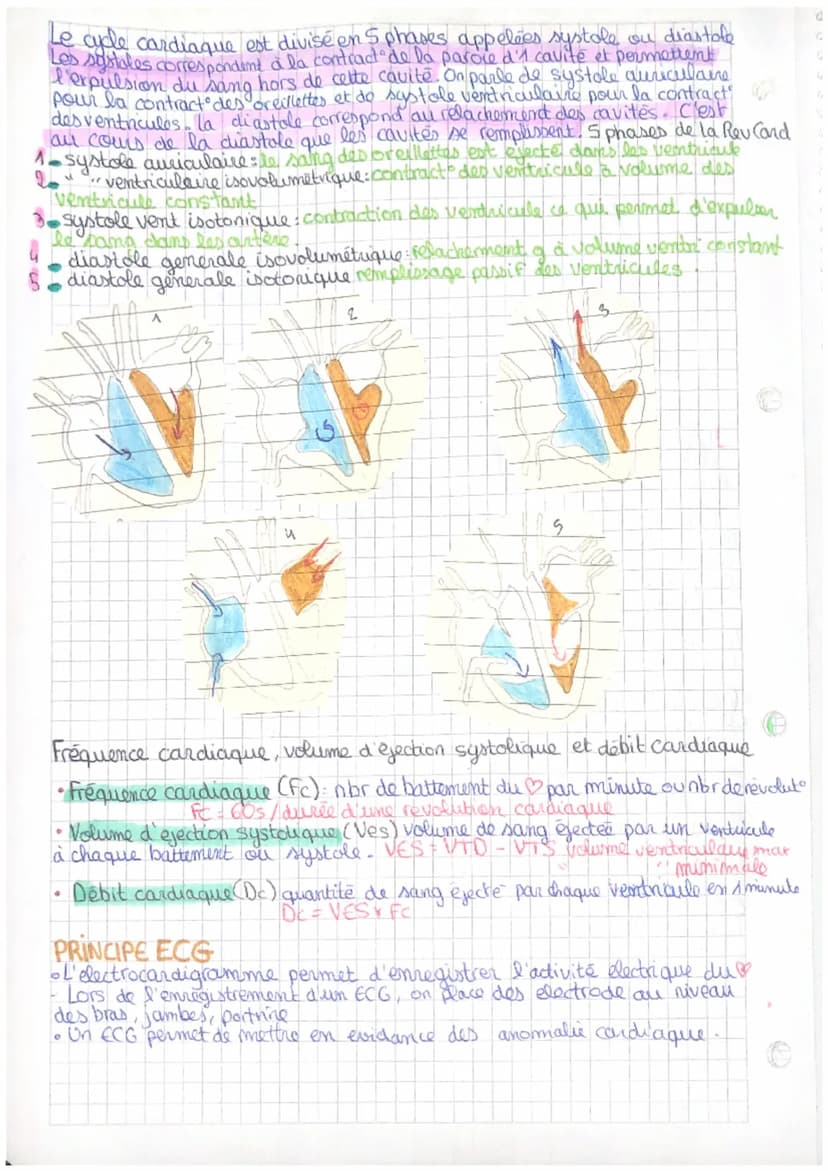 Le cycle cardiaque est divisé en 5 phases appelées systole ou diastole
Les systoles correspondent à la contract° de la paroie d'1 cavité et permettent
l'expulsion du sang hors de cette cavité. On parle de systole auriculaire
pour la contract° des oreillettes et de systole ventriculaire pour la contract°
des ventricules. La diastole correspond au relachement des cavités. C'est
au cours de la diastole que les cavités se remplissent. 5 phases de la Rev Card
1 - systole auriculaire : le sang des oreillettes est éjecté dans les ventricule
2 - " " ventriculaire isovolumétrique : contract° des ventricule à volume des
ventricule constant
3 - systole vent isotonique : contraction des ventricule ce qui permet d'expulser
le sang dans les artère.
4 - diastole generale isovolumétrique : relachement g à volume ventri constant
5 - diastole génerale isotonique remplissage passif des ventricules.
1 2 3
4 5
Fréquence cardiaque, volume d'ejection systolique et débit cardiaque
• Fréquence cardiaque (Fc) : nbr de battement du ♡ par minute ou nbr de révolut°
Fc = 60s / durée d'une revolution cardiaque
• Volume d'ejection systolique (Ves) volume de sang éjectée par un ventricule
à chaque battement ou systole. VES = VTD - VTS volume ventriculaire max
" minimale
• Débit cardiaque (Dc) quantité de sang éjecté par chaque ventricule en 1 minute
Dc = VES x Fc
PRINCIPE ECG
• L'electrocardigramme permet d'enregistrer l'activité electrique du ♡
- Lors de l'enregistrement d'un ECG, on place des electrode au niveau
des bras, jambes, poitrine
• Un ECG permet de mettre en evidance des anomalie cardiaque.